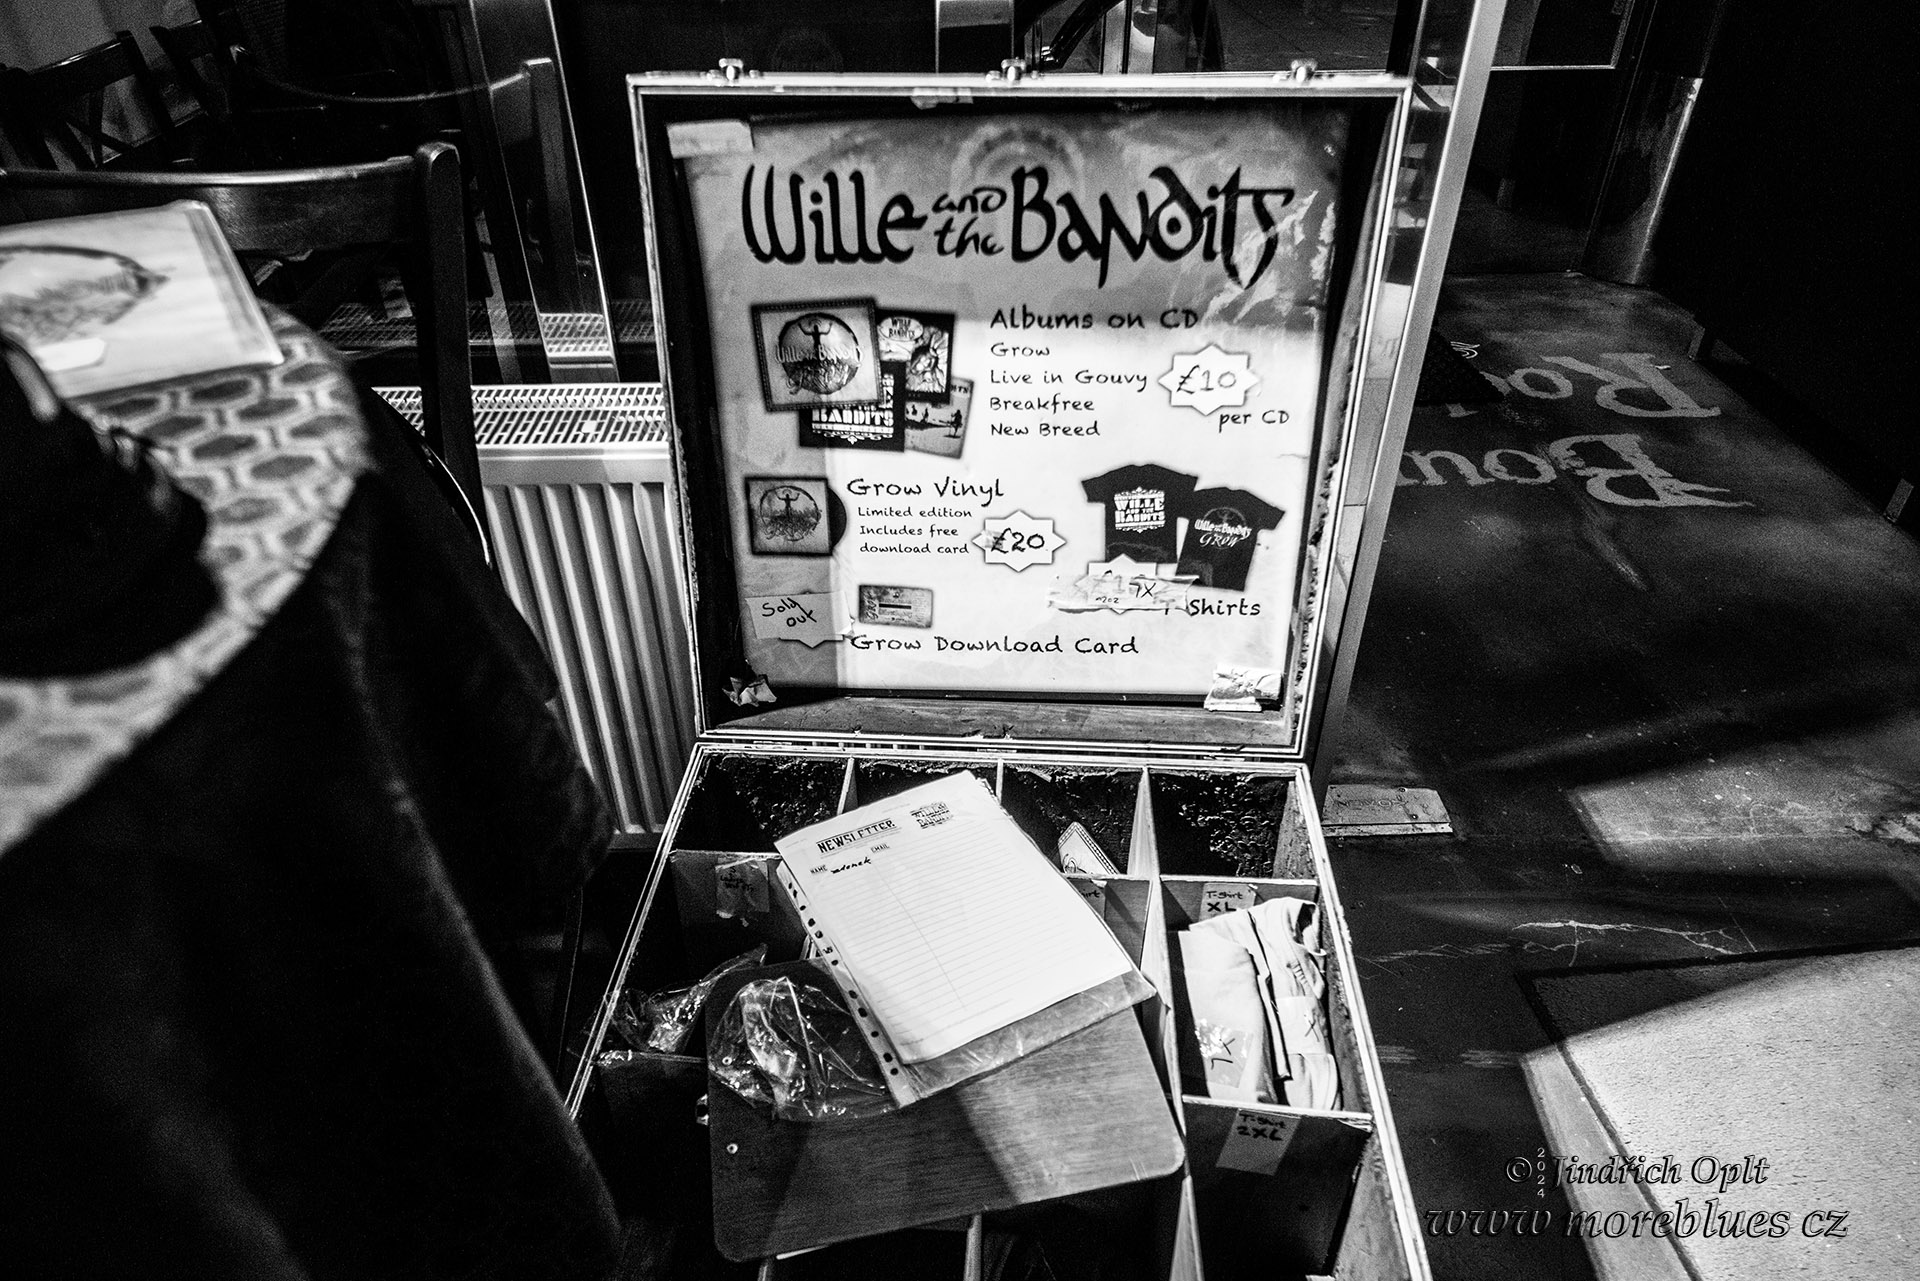 Wille and the Bandits
Albums on CD
Grow
Live in Gouvy
Breakfree
New Breed
£10
per CD
Grow Vinyl
Limited edition
Includes free
download card
£20
WILLE
AND THE
BANDITS
Wille and the Bandits
GROW
Shirts
Sold
out
Grow Download Card
BANDITS
NEWSLETTER
NAME
EMAIL
T-Shirt
XL
T-Shirt
2XL
© 2024 Jindřich Oplt
www moreblues cz